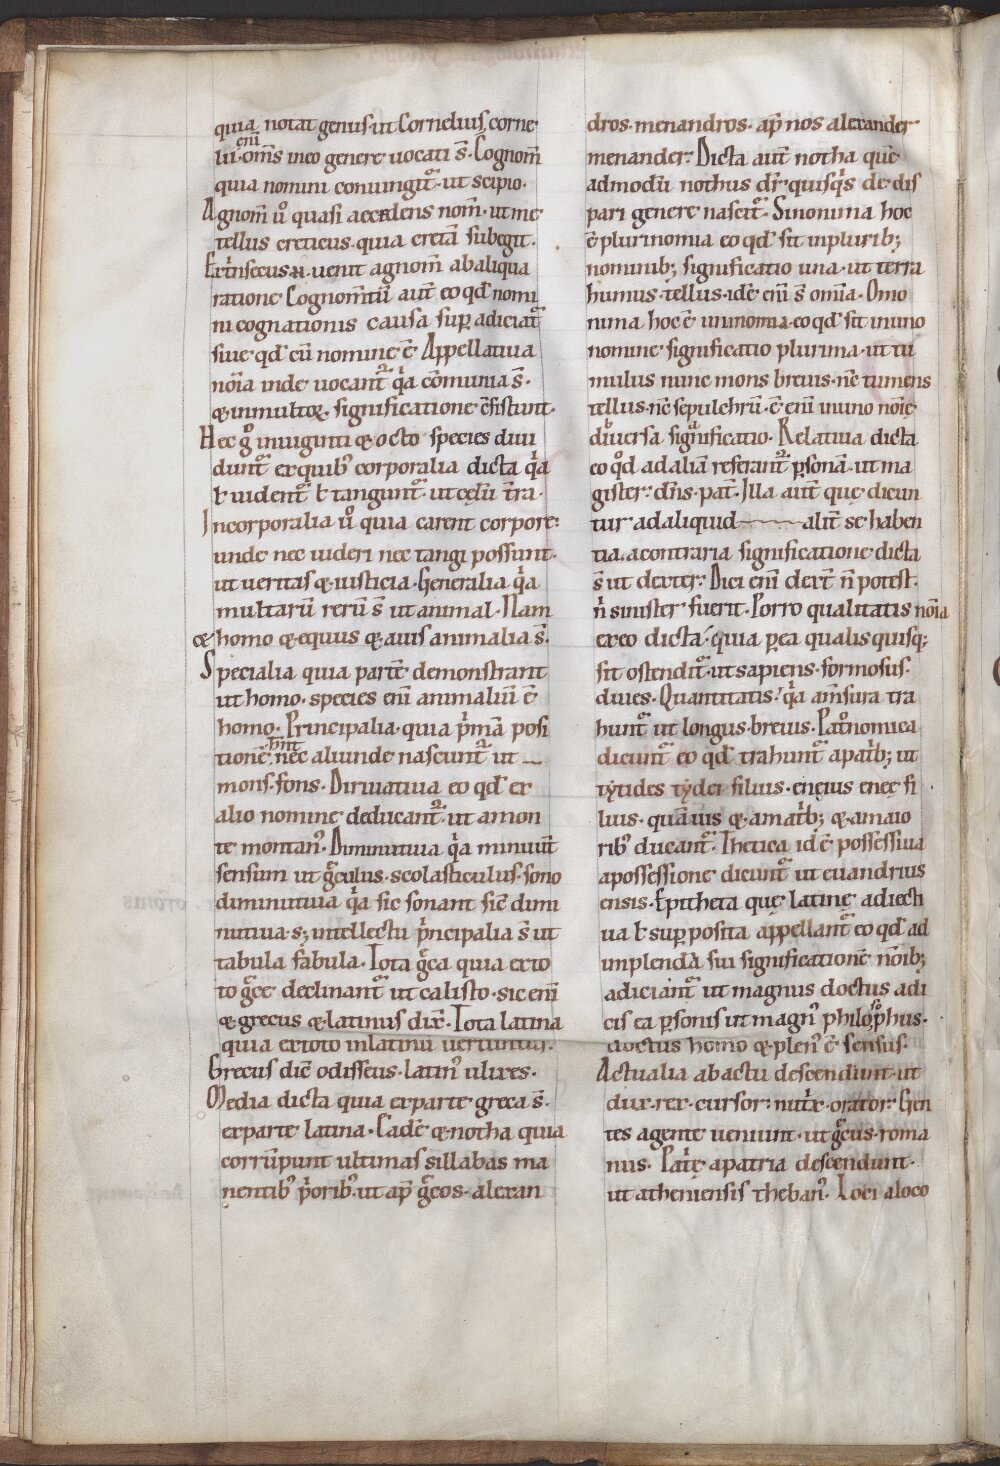 quia notat genus· ut Cornelius, corne
enī
lii· om̄s in eo genere uocati s̄· Cognom̄
quia nomini coniungit᷑· ut scipio·
Agnom̄ u᷎ quasi accedens nom̄· ut me
tellus creticus· quia cretā subegit·
Extⁱnsecus .n. uenit agnom̄ ab aliqua
ratione Cognom̄tū aut̄ eo qd̄ nomi
ni cognationis causa sup̱ adiciat᷑
siue qd̄ cū nomine ē Appellatiua
nōīa inde uocant᷑ qⁱa cōmunia s̄·
& in multoꝝ· significatione c̄sistunt·
Hec gͦ in uiginti & octo species diui
dunt᷑ ex quibꝰ corporalia dicta qⁱa
ł uident᷑ ł tangunt᷑· ut cęlū t̄ra·
Incorporalia uͦ quia carent corpore:
unde nec uideri nec tangi possunt·
ut ueritas & iusticia· Generalia qⁱa
multarū rerū s̄ ut animal· Nam
& homo & equus & auis animalia s̄·
Specialia quia partē demonstrant
ut homo· species enī animaliū ē
homo· Principalia· quia pⁱmā posi
hn̄t
tionē· nec aliunde nascunt᷑ ut
mons· fons· Diriuatiua eo qd̄ ex
alio nomine deducant᷑· ut a mon
te montanꝰ· Diminutiua qⁱa minuūt
sensum ut gᷓculus· scolasticulus· sono
diminutiua qⁱa sic sonant sic̄ dimi
nutiua· s; intellectu pⁱncipalia s̄ ut
tabula fabula· Tota gᷓca quia ex to
to gᷓce declinant᷑ ut calisto· sic enī
& grecus & latinus dix̄· Tota latina
quia ex toto in latinū uertuntur·
Grecus dic̄ odisseus· latinꝰ ulixes·
Media dicta quia ex parte greca s̄·
ex parte latina· Eadē & notha quia
corrūpunt ultimas sillabas ma
nentibꝰ pⁱoribꝰ· ut ap̄ gᷓcos· alexan
dros· menandros· ap̄ nos alexander
menander: Dicta aut̄ notha quē
admodū nothus dr̄ quisqⁱs de dis
pari genere nascit᷑· Sinonima hoc
ē plurinomia eo qd̄ sit in plurib;
nominib; significatio una· ut terra
humus· tellus· idē enī s̄ om̄ia· Omo
nima hoc ē uninomia eo qd̄ sit in uno
nomine significatio plurima· ut tu
mulus nunc mons breuis· nc̄ tumens
tellus· nc̄ sepulchrū· ē enī in uno nōīe
diuersa significatio· Relatiua dicta
eo qd̄ ad aliā referant᷑ p̱sonā· ut ma
gister: dn̄s· pat̄· Illa aut̄ quę dicun
tur ad aliquid alit̄ se haben
tia· a contraria significatione dicta
s̄ ut dexter: Dici enī dext̄ n̄ potest·
nⁱ sinister fuerit· Porro qualitatis nōīa
ex eo dicta· quia p̱ ea qualis quisq;
sit ostendit᷑· ut sapiens· formosus·
diues· Quantitatis: qⁱa a m̄sura tra
hunt᷑ ut longus· breuis· Patͦnomica
dicunt᷑ eo qd̄ trahunt᷑ a patⁱb; ut
tẏtides tẏdei filius· enęius enęę fi
lius· quāuis & a matⁱb; & a maio
ribꝰ ducant᷑· Thetica id ē possessiua
a possessione dicunt᷑ ut euandrius
ensis· Epitheta quę latinę adiecti
ua ł sup̱ posita appellant᷑ eo qd̄ ad
implendā sui significationē nōīb;
adiciant᷑ ut magnus doctus adi
cis ea p̱sonis ut magnꝰ philosophus·
doctus homo & plenꝰ ē sensus·
Actualia ab actu descendunt· ut
dux· rex· cursor: nutⁱx· orator: Gen
tes a gente ueniunt· ut gᷓcus· roma
nus· Patⁱę a patria descendunt·
ut atheniensis thebanꝰ· Loci a loco